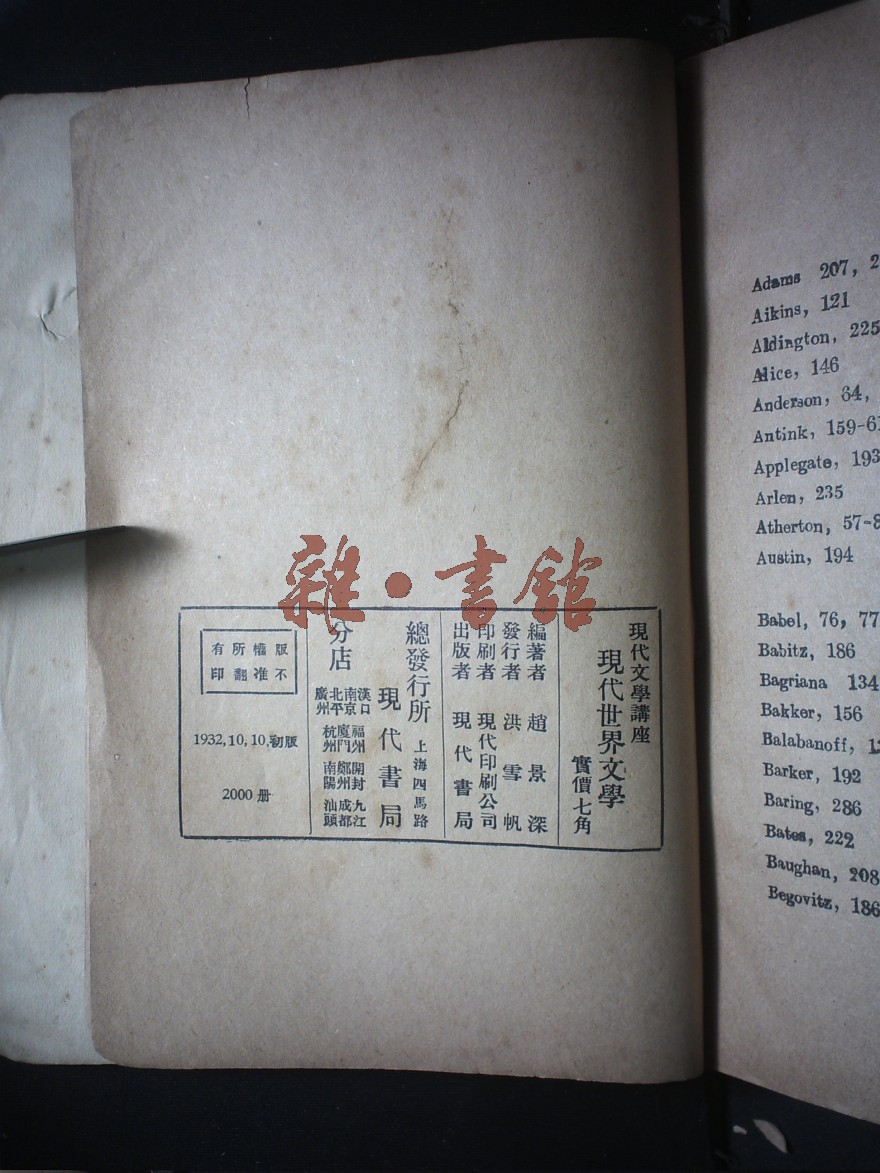 雜·書館
現代文學講座
現代世界文學
實價七角
編著者 趙景深
發行者 洪雪帆
印刷者 現代印刷公司
出版者 現代書局
總發行所 上海四馬路
現代書局
分店
漢口 福州 開封 九江
南京 廈門 鄭州 成都
北平
廣州 杭州 南陽 汕頭
版權所有
不准翻印
1932,10,10,初版
2000 册
Adams 207, 2
Aikins, 121
Aldington, 225
Alice, 146
Anderson, 64,
Antink, 159-61
Applegate, 193
Arlen, 235
Atherton, 57-8
Austin, 194
Babel, 76, 77
Babitz, 186
Bagriana 134
Bakker, 156
Balabanoff, 1
Barker, 192
Baring, 286
Bates, 222
Baughan, 208
Begovitz, 186